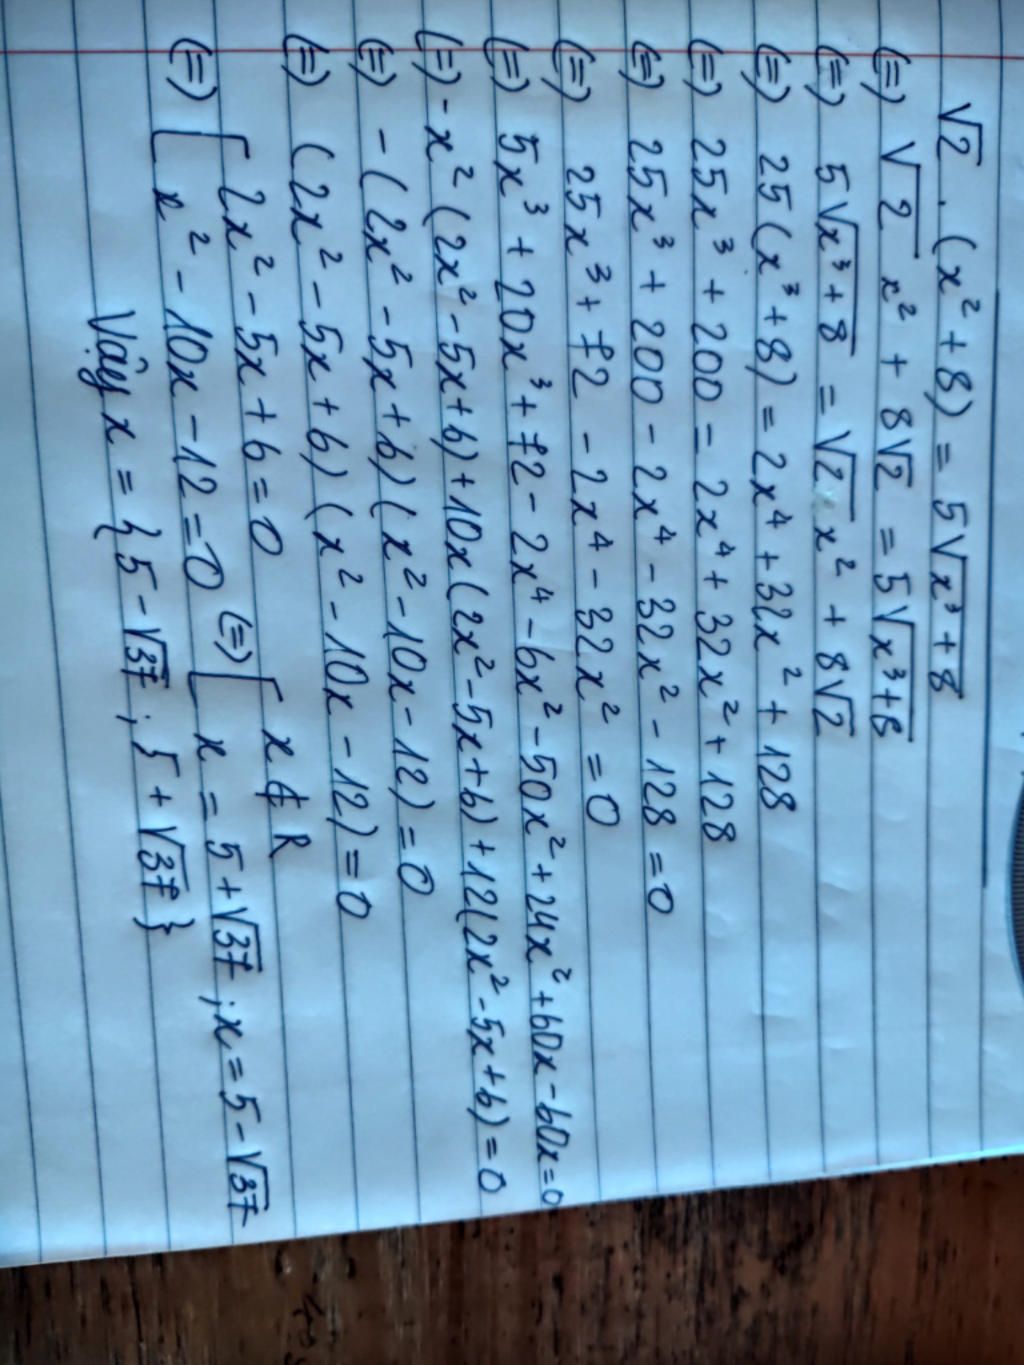 √2 . (x² + 8) = 5√x³ + 8
(=) √2 x² + 8√2 = 5√x³ + 8
(=) 5√x³ + 8 = √2 x² + 8√2
(=) 25(x³ + 8) = 2x⁴ + 32x² + 128
(=) 25x³ + 200 = 2x⁴ + 32x² + 128
(=) 25x³ + 200 - 2x⁴ - 32x² - 128 = 0
(=) 25x³ + 72 - 2x⁴ - 32x² = 0
(=) 5x³ + 20x³ + 72 - 2x⁴ - 6x² - 50x² + 24x² + 60x - 60x = 0
(=) - x² (2x² - 5x + 6) + 10x (2x² - 5x + 6) + 12(2x² - 5x + 6) = 0
(=) - (2x² - 5x + 6) (x² - 10x - 12) = 0
(=) (2x² - 5x + 6) (x² - 10x - 12) = 0
(=) [ 2x² - 5x + 6 = 0 (=) [ x ∉ R
x² - 10x - 12 = 0 x = 5 + √37 ; x = 5 - √37
Vậy x = { 5 - √37 ; 5 + √37 }